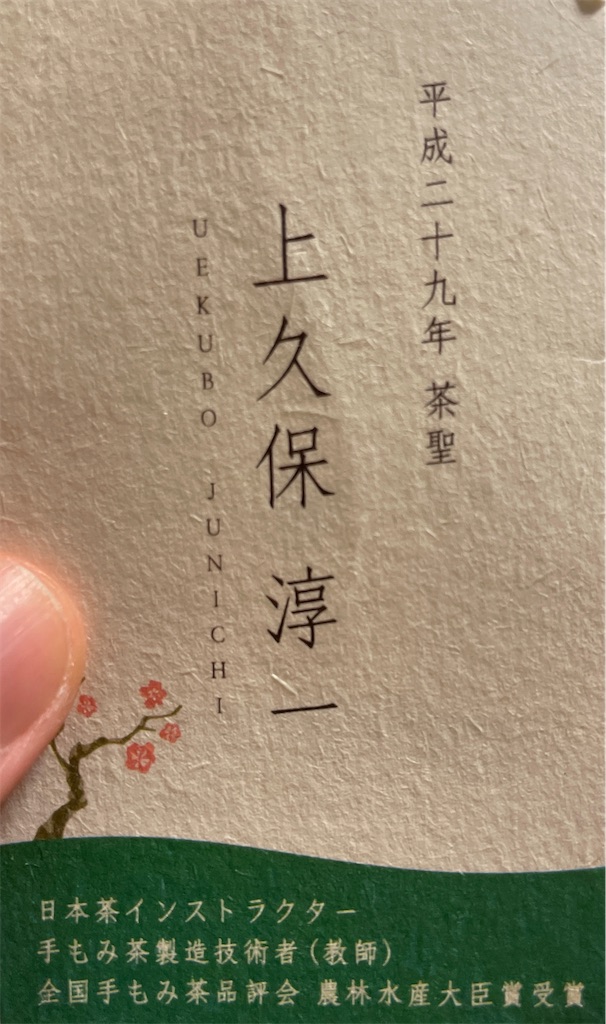 平成二十九年 茶聖
上久保 淳一
UEKUBO JUNICHI
日本茶インストラクター
手もみ茶製造技術者(教師)
全国手もみ茶品評会 農林水産大臣賞受賞